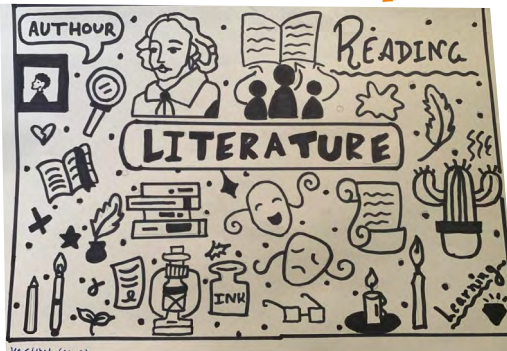 AUTHOUR
READING
LITERATURE
INK
Learning